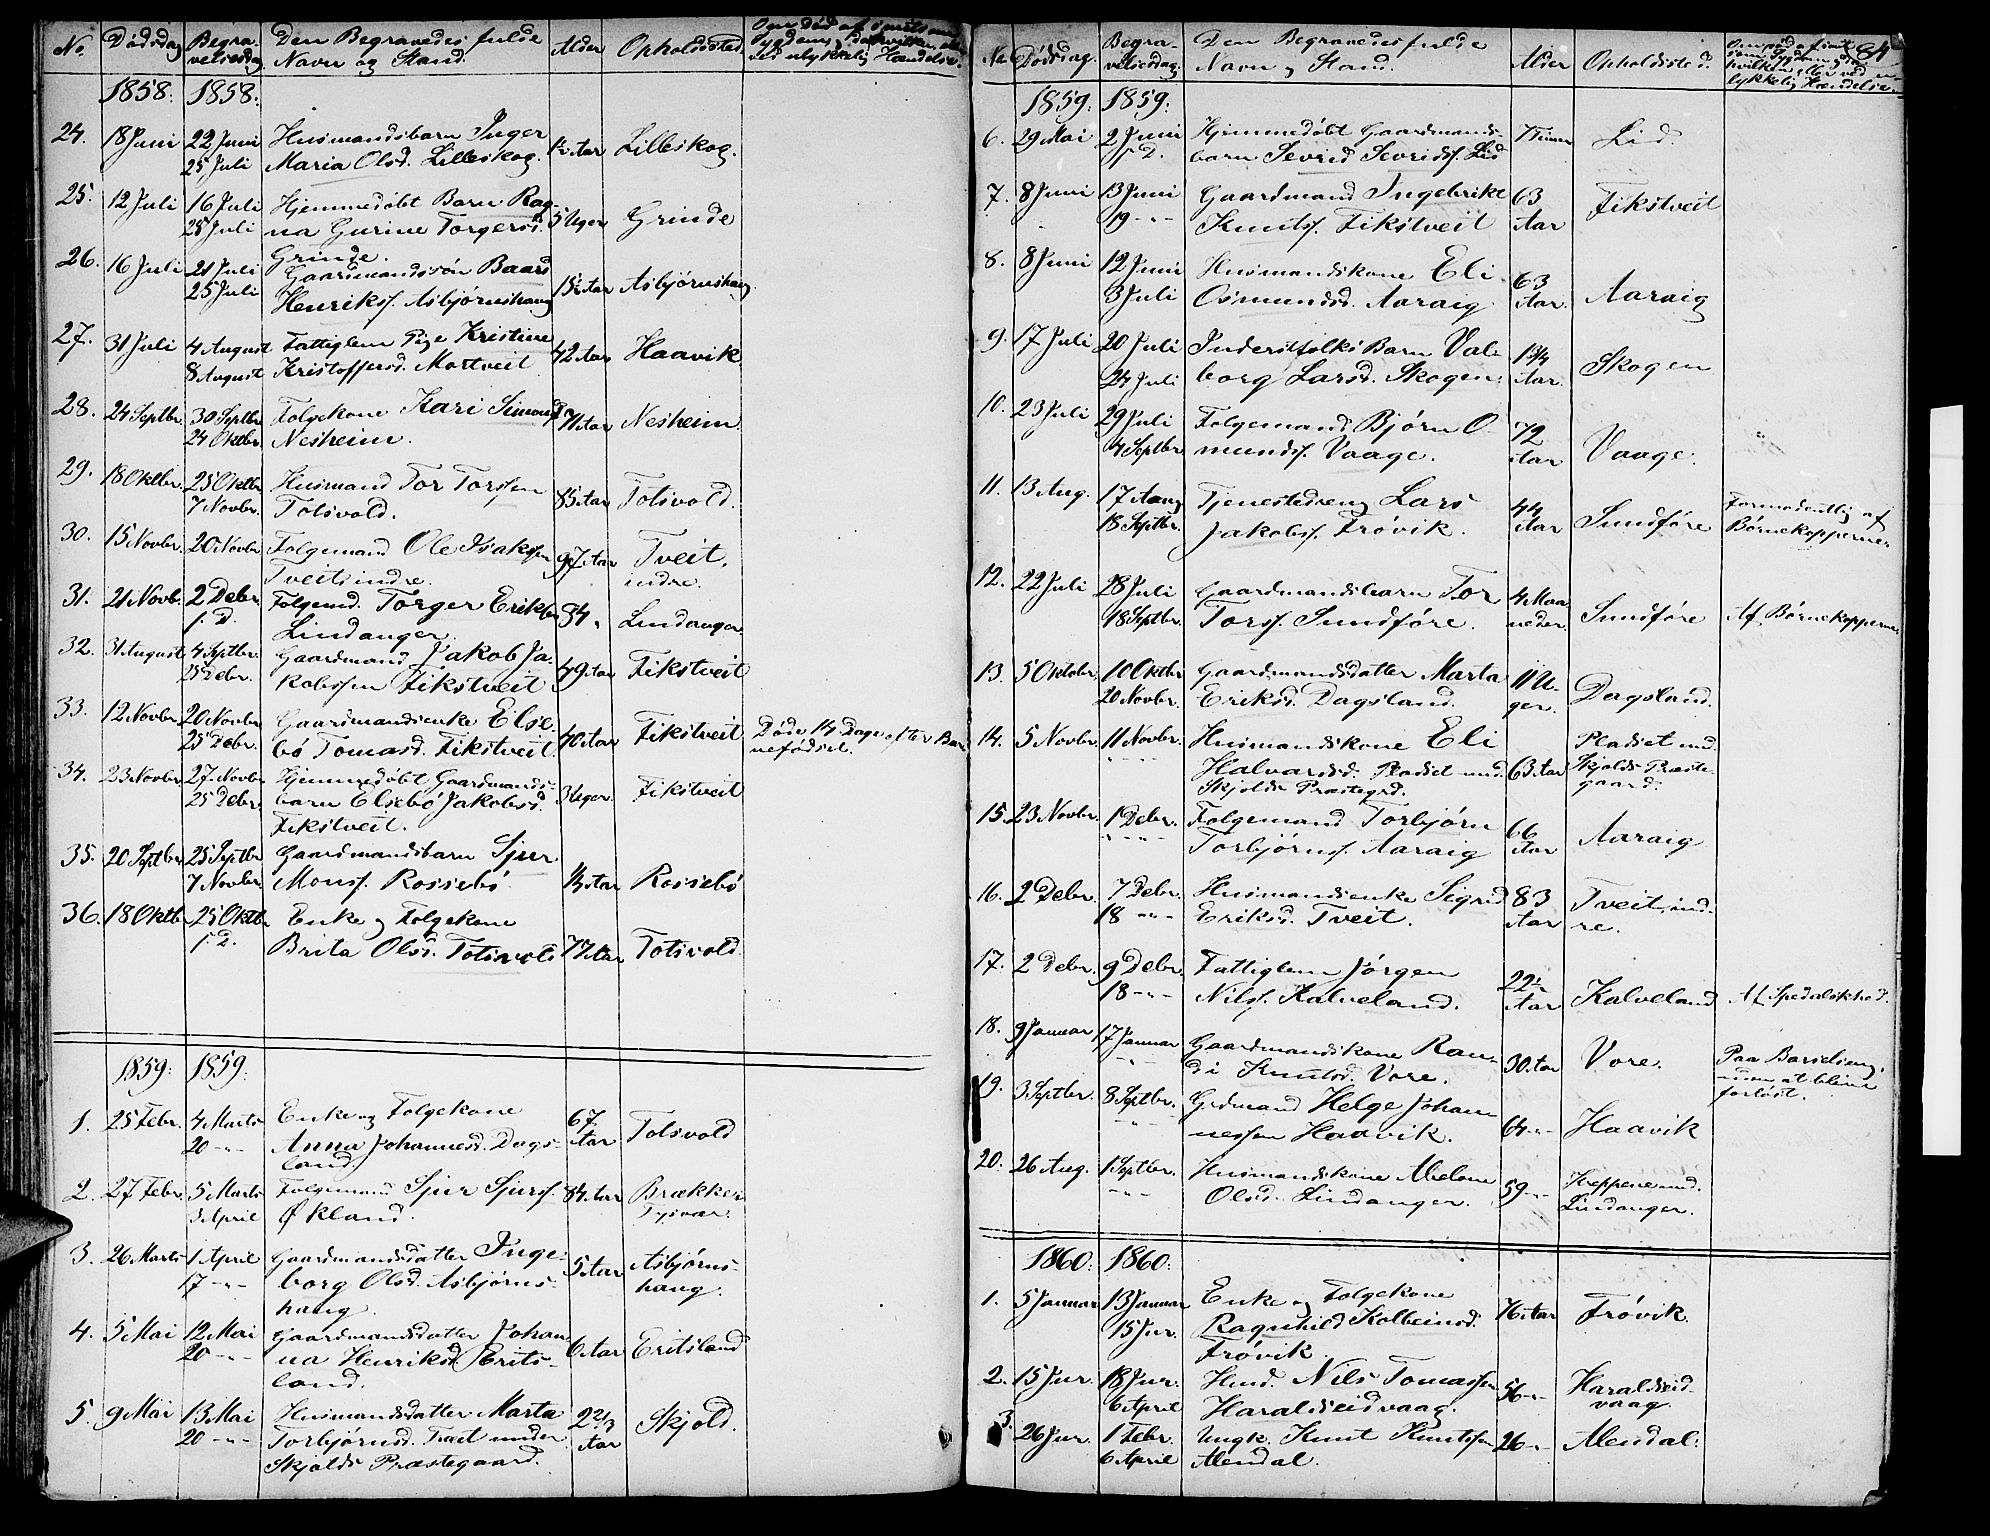 No. Dødsdag Begravelsesdag. Den Begravedes fulde Navn og Stand. Alder Opholdssted.
1858: 1858:
24. 18 Juni 22 Juni Husmandsbarn Inger
25 Juli Maria Olsd. Lilleskog. 1½ Aar Lilleskog.
25. 12 Juli 16 Juli Hjemmedøbt Barn Rag-
25 Juli na Gurine Torgersd. 5 Uger Grinde
Grinde.
26. 16 Juli 21 Juli Gaardmandssøn Baard
25 Juli Henrikss. Asbjørnshaug 15½ Aar Asbjørnshaug
27. 31 Juli 4 August Fattiglem Pige Kristine
8 August Kristoffersd. Mortveit 42 Aar Haavik
28. 24 Septbr. 30 Septbr. Folgekone Kari Simonsd.
24 Oktbr. Nesheim. 71 Aar Nesheim.
29. 18 Oktbr. 25 Oktbr. Husmand Tor Torssen
7 Novbr. Totsvold. 85 Aar Totsvold.
30. 15 Novbr. 20 Novbr. Folgemand Ole Isakssen
Tveit indre. 97 Aar Tveit,
indre.
31. 21 Novb. 2 Debr. Folgemd. Torger Erikssen
s. D. Lindanger. 84 " Lindanger.
32. 31 August 4 Septbr. Gaardmand Jakob Ja-
25 Debr. kobssen Fikstveit 49 Aar Fikstveit
33. 12 Novbr. 20 Novbr. Gaardmandsenke Else-
25 Debr. bø Tomasd. Fikstveit. 40 Aar Fikstveit Døde 14 Dage efter Bar-
nefødsel.
34. 23 Novbr. 27. Novbr. Hjemmedøbt Gaardmands-
25 Debr. barn Elsebø Jakobsd. 3 Uger. Fikstveit
Fikstveit.
35. 20 Septbr. 25 Septbr. Gaardmandsbarn Sjur
7 Novbr. Monss. Rossebø Aar Rossebø
36. 18 Oktbr. 25 Oktbr. Enke og Folgekone
s. D. Brita Olsd. Totsvold 77 Aar Totsvold.
1859: 1859:
1. 25 Febr. 4 Marts Enke og Folgekone 67
20 -"- Anna Johannesd. Dags- Aar Totsvold
land.
2. 27 Febr. 5 Marts Folgemand Sjur Sjurss. 84 Aar Brække
3 April Økland. Tysvær.
3. 26 Marts 1 April Gaardmandsdatter Inge-
17 -"- borg Olsd. Asbjørns- 5 Aar Asbjørns-
haug. haug.
4. 5 Mai 12 Mai Gaardmandsdatter Johan-
20 -"- na Henriksd. Erits- 6 Aar Eritsland
land.
5. 9 Mai 13 Mai Husmandsdatter Marta 2 2/3
20 -"- Torbjørnsd. Træet under Aar Skjold.
Skjolds Præstegaard.
84
No. Dødsdag. Begravelsesdag. Den Begravedes fulde Navn og Stand. Alder Opholdssted.
1859: 1859:
6. 29 Mai 2 Juni Hjemmedøbt Gaardmands-
s. D. barn Sevrid Sevridss. Lid 7 Timer Lid.
7. 8 Juni 13 Juni Gaardmand Ingebrikt 63
19 -"- Knuts. Fikstveit Aar Fikstveit
8. 8 Juni 12 Juni Husmandskone Eli 63
3 Juli Osmundsd. Aaraig Aar. Aaraig
9. 17 Juli 20 Juli Inderstfolks Barn Val- 1 3/4
24 Juli borg Larsd. Skogen. Aar. Skogen
10. 23 Juli 29 Juli Folgemand Bjørn O- 72
4 Septbr. mundss. Vaage. Aar Vaage.
11. 13 Aug. 17 Aaug Tjenestedreng Lars 44 Formodentlig af
18 Septbr. Jakobss. Frøvik. Aar Sundføre Børnekopperne.
12. 22 Juli 28 Juli Gaardmandsbarn Tor 4 Maa-
18 Septbr. Torss. Sundføre. neder. Sundføre Af Børnekopperne
13. 5 Oktober 10 Oktbr Gaardmandsdatter Marta 11 U-
20 Novbr. Eriksd. Dagsland. ger. Dagsland.
14. 5 Novbr. 11 Novbr. Husmandskone Eli Pladset und.
-"- Halvardsd. Pladset und. 63 Aar Skjolds Præste-
Skjolds Præstegrd. gaard.
15. 23 Novbr. 1 Debr. Folgemand Torbjørn 66
-"- Torbjørnss. Aaraig Aar Aaraig
16. 2 Debr. 7 Debr. Husmandsenke Sigrid 83 Tveit, ind-
18 -"- Eriksd. Tveit. Aar re.
17. 2 Debr. 9 Debr. Fattiglem Jørgen 22½
18 -"- Nilss. Kalveland. Aar Kalveland Af Spedalskhed.
18. 9 Januar 17 Januar Gaardmandskone Ran-
-"- di Knutsd. Vore. 30 Aar Vore. Paa Barselseng,
uden at blive
forløst.
19. 3 Septbr. 8 Septbr. Grdmand Helge Johan-
-"- nessen Haavik. 64 -"- Haavik
20. 26 Aug. 1 Septbr. Husmandskone Abelone
-"- Olsd. Lindanger. 59 -"- Kreppene und.
Lindanger.
1860: 1860:
1. 5 Januar 13 Januar Enke og Folgekone
15 Jur. Ragnhild Kolbeinsd. 76 Aar Frøvik.
Frøvik.
2. 15 Jur. 18 Jur. Hmd. Nils Tomassen 56 -"- Haraldseid-
6 April Haraldseidvaag. vaag.
3. 26 Jur. 1 Febr. Ungk. Knut Knutssen 26 -"- Alendal.
6 April Alendal.